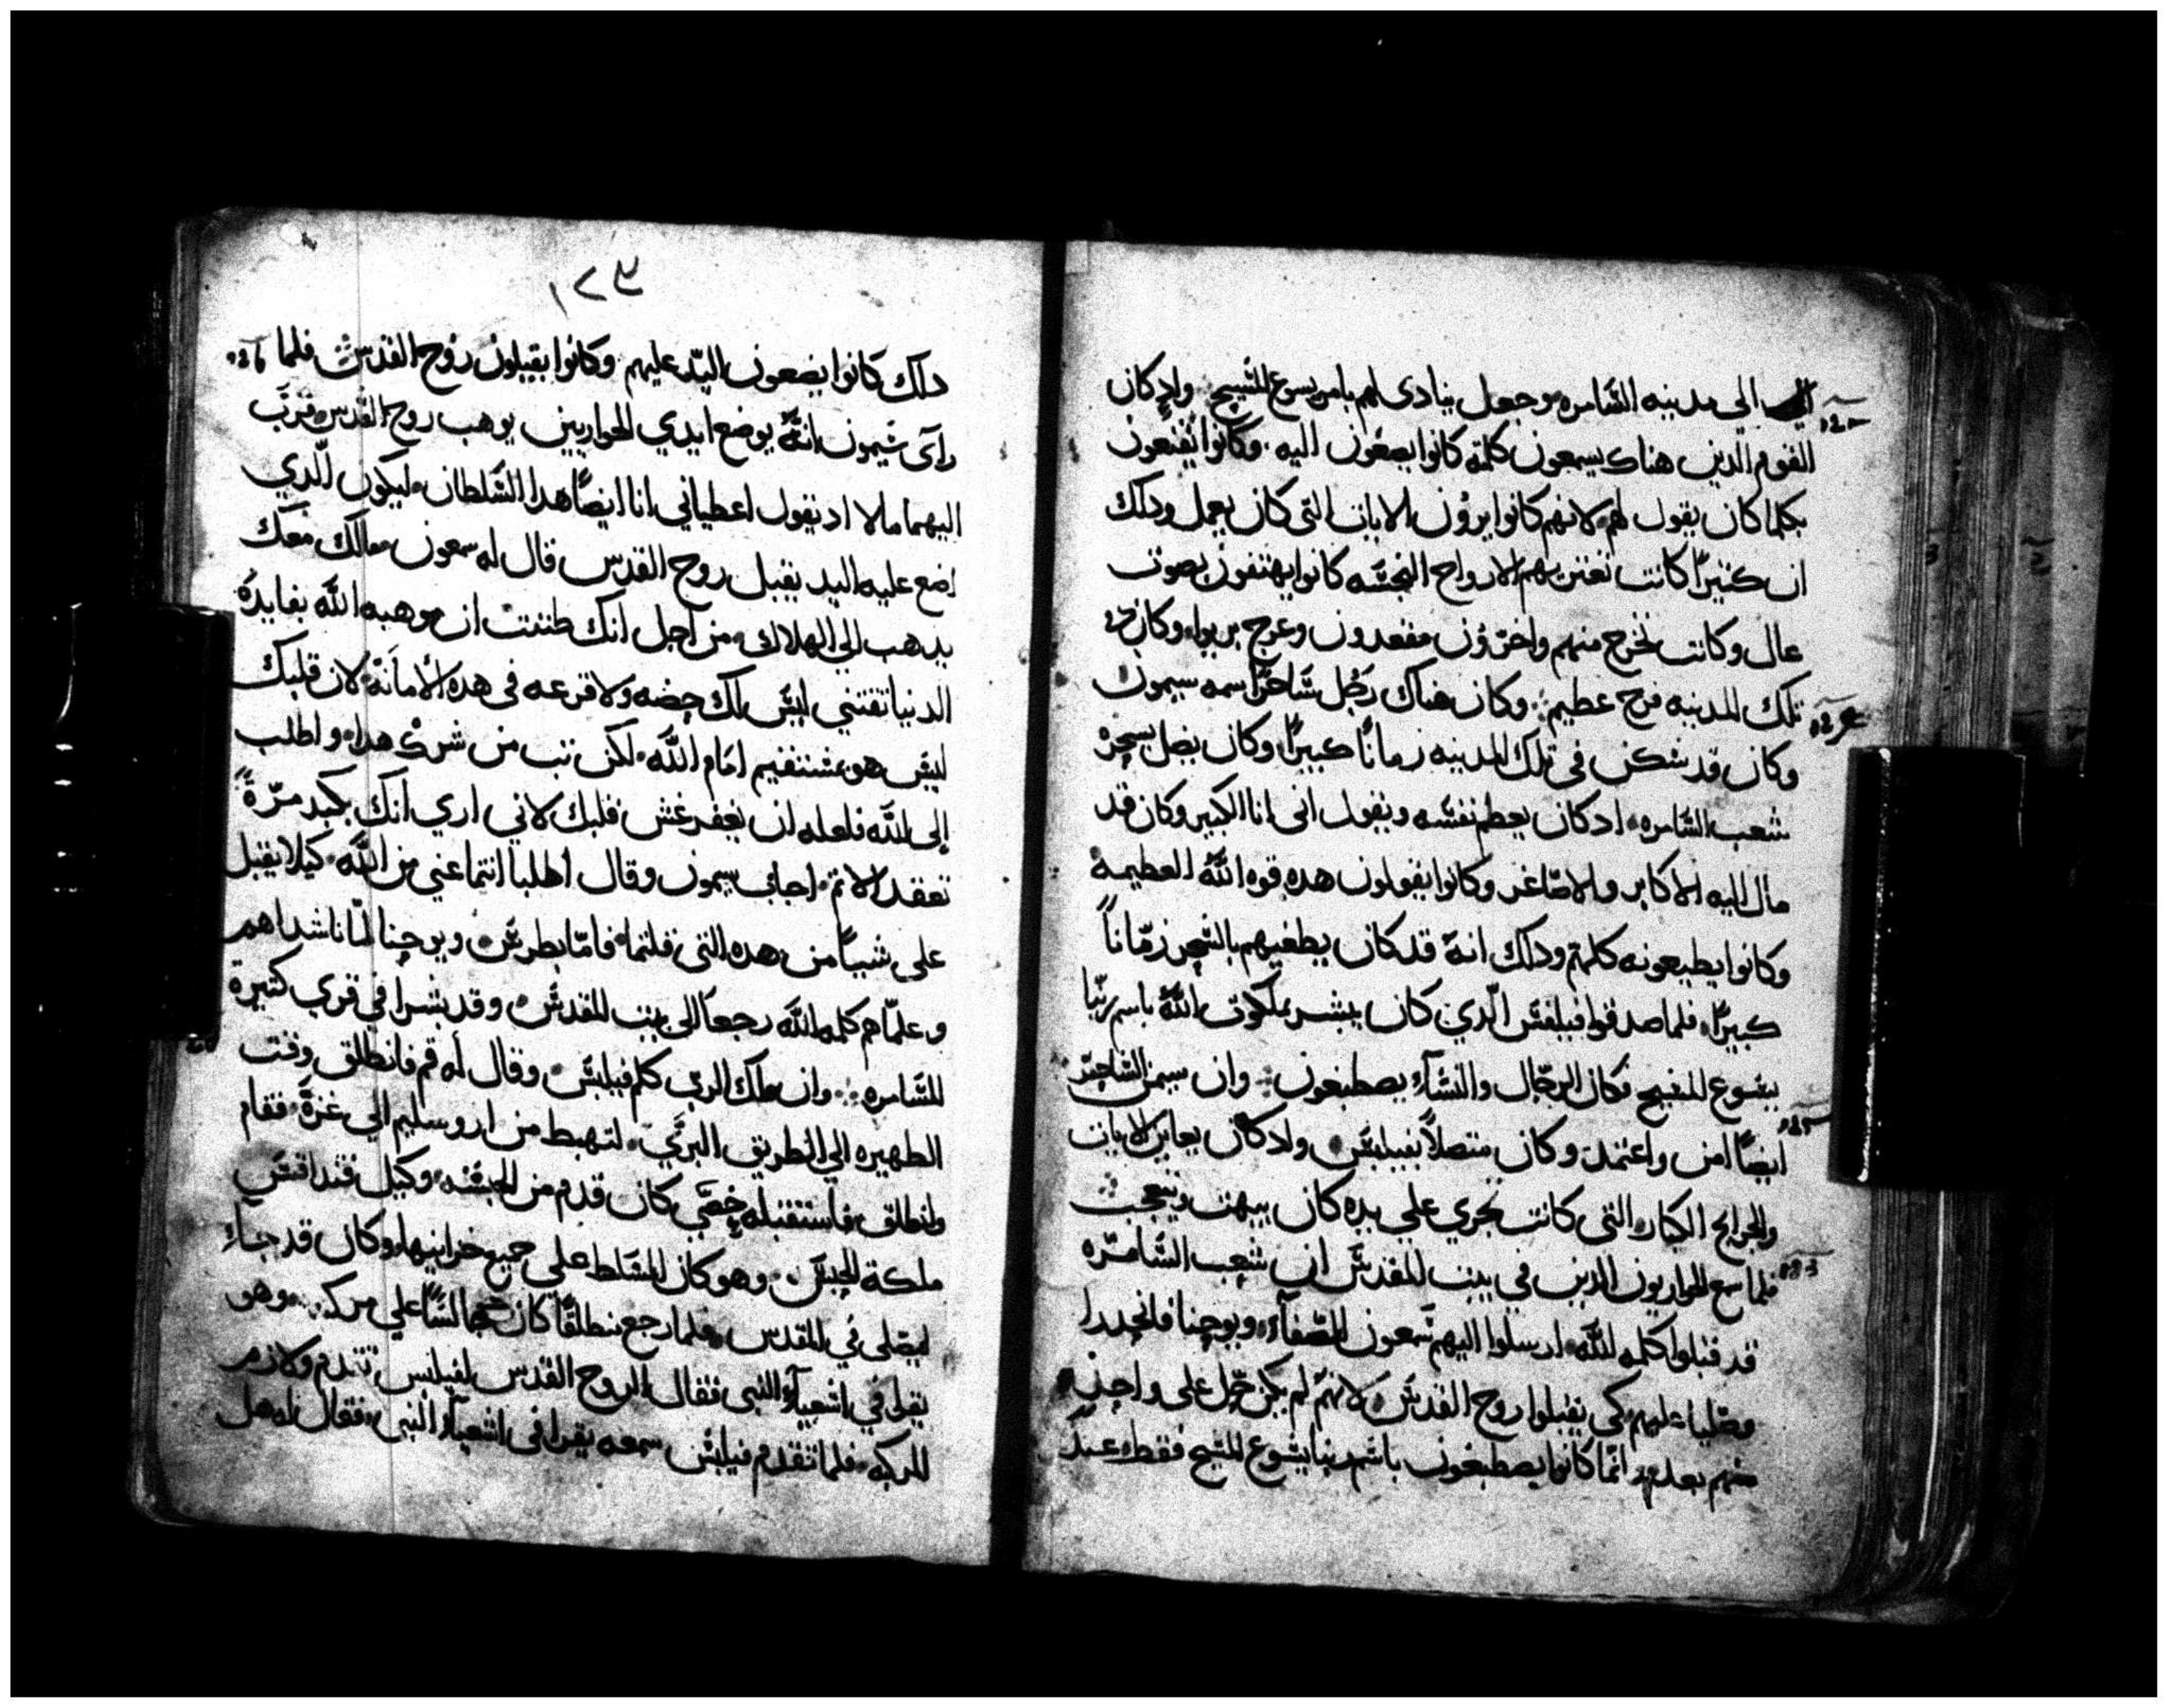 الى مدينه السامره وجعل ينادى لهم بامر يسوع المسيح واد كان
القوم الدين هناك يسمعون كلمته كانوا يصغون اليه وكانوا يقنعون
بكلما كان يقول لهم لانهم كانوا يرؤن الايات التى كان يعمل ودلك
ان كثيرًا كانت تعترى بهم الارواح النجسه كانوا يهتفون بصوت
عال وكانت تخرج منهم واخرؤن مقعدون وعرج بريوا وكان في
تلك المدينه فرح عظيم وكان هناك رجُل ساحرًا اسمه سيمون
وكان قد سكن فى تلك المدينه زمانًا كبيرًا وكان يضل بسحره
شعب السامره ادكان يعظم نفسه ويقول انى انا الكبير وكان قد
مال اليه الاكابر والاصاغر وكانوا يقولون هده قوه الله العظيمة
وكانوا يطيعونه كلهم ودلك انهُ قد كان يطغيهم بالسحر زمّاناً
كبيرًا فلما صدقوا فيلفس الّدي كان يبشر بملكوت اللهُ باسم ربّنا
يسُوع المسيح فكان الرجّال والنسَآء يصطبغون وان سيمن السّاحِر
ايضًا امن واعتمد وكان متصلاً بفيلبس واد كان يعاين الايات
والجرايح الكبار التى كانت تجري علي يده كان يبهت ويتعجب
فلما سمع الحواريون الدين في بيت المقدسَ ان شعِب السَامرّه
قد قبلوا كلمه اللهَ ارسلوا اليهم سَمعون الصّفَآء ويوحِنا فانحِدرا
وصَليا عليهم كى يقبلوا روح القدسَ لانهم لم يكن حَل على واحِد
منهم بعد انمّا كانوا يصطبغون باسم ربنا يسُوع المسيح فقط عند
١٢٣
دلك كانوا يضعون اليّد عليهم وكانوا يقبلون رُوح القدس فلما
راى سَيمون انهُ بوضع ايدي الحواريين يوهب روح القدس قربَ
اليهما مالا اد يقول اعطيانى انا ايضًا هدا السَلطان ليكون الّدي
اضع عليه اليد يقبل روح القدس قال له سمعون مالك معَك
يدهب الي الهلاك من اجل انك ظننت ان موهبه اللهَ بفايدة
الدنيا تقتني ليسَ لك حِضه ولا قرعه فى هده الأمانَة لان قلبك
ليسَ هو مستقيم امَام اللهَ لكن تب من شرك هدا واطلب
إلى اللهَ فلعله ان يغفر غش قلبك لاني اري انك بكبد مرّةً
تعقد الاتم اجاب سيمون وقال اطلبا انتما عني من اللهَ كيلا يقبل
على شيئًا من هده التى قلتما فامّا بطرسَ ويوحِنا لمّا ناشداهم
وعلمّاهم كلمه اللهَ رجعآ الى بيت المقدسَ وقد بشرا في قري كثيرة
للسَامره وان ملك الربّ كلم فيلبسَ وقال له قم فانطلق وقت
الظهيره الي الطريق البريَّ لتهبط من اروسليم الي غزة فقام
وانطلق فاستقبله خِصَي كان قدم من الحبشه وكيل قنداقسَ
ملكة الحِبش وهو كان المسَلط علي جميع خزاينها وكان قد جاءَ
ليصَلى في المقدس فلما رجع منطلقًا كان جالسًا على مركبه وهو
يقرا في اشعيآء النبى فقال الروح القدس لفيلبس تقدم ولازم
المركبه فلما تقدم فيلبس سمعه يقرا فى اشعيآء النبى فقال له هل